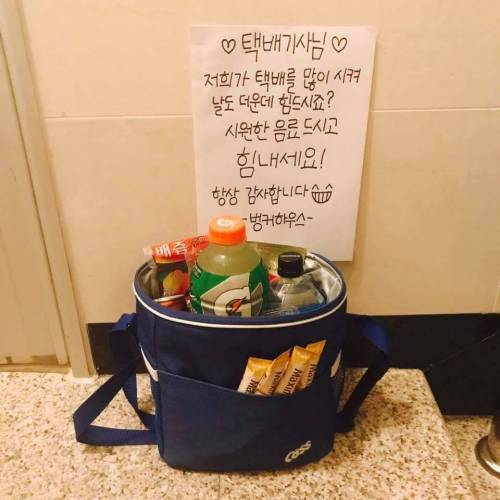 ♡ 택배기사님 ♡
저희가 택배를 많이 시켜
날도 더운데 힘드시죠?
시원한 음료 드시고
힘내세요!
항상 감사합니다
-벙커하우스-
G
Maxim
Cass